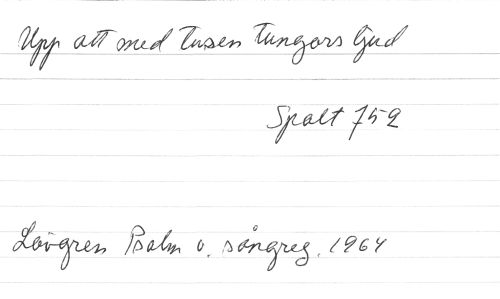 Upp att med tusen tungors ljud
Spalt 752
Lövgren Psalm o. sångreg. 1964